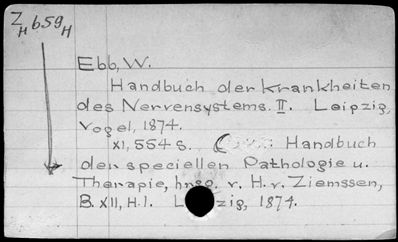 Z H b59 H
Ebb, W.
Handbuch der Krankheiten
des Nervensystems. II. Leipzig,
Vogel, 1874.
XI, 554 S. Handbuch
der speciellen Pathologie u.
Therapie, hrsg. v. H. v. Ziemssen,
B. XII, H. 1. 1874.